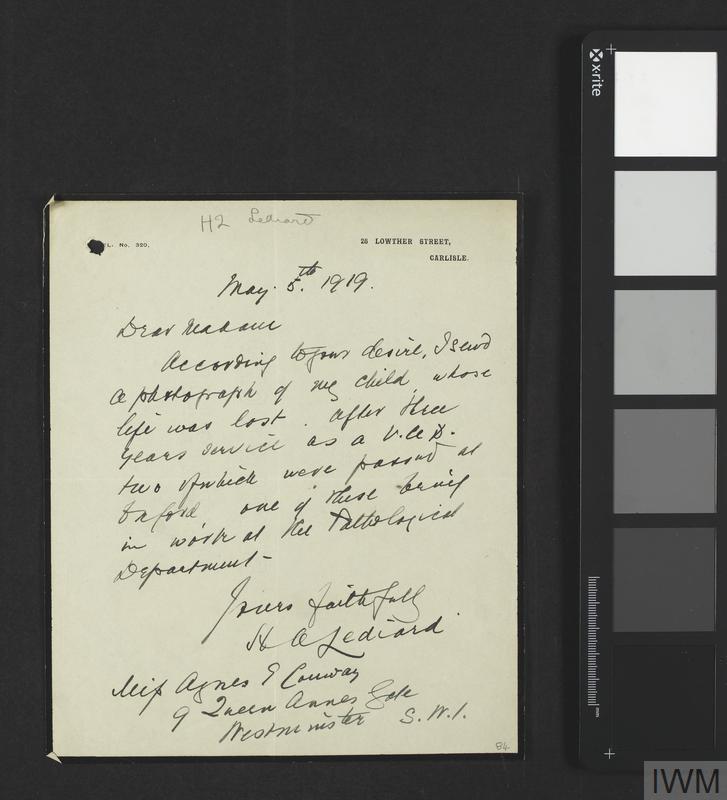 H2 Lediard
TEL. No. 320.
28 LOWTHER STREET,
CARLISLE.
May. 5.th 1919.
Dear Madam
According to your desire, I send
a photograph of my child, whose
life was lost. after three
years service as a V.A.D.
two of which were passed at
Oxford one of these being
in work at the Pathological
Department-
Yours faithfully
H A Lediard.
Miss Agnes E Conway
9 Queen Annes Gate
Westminster S.W.1.
84.
x-rite
mm
IWM